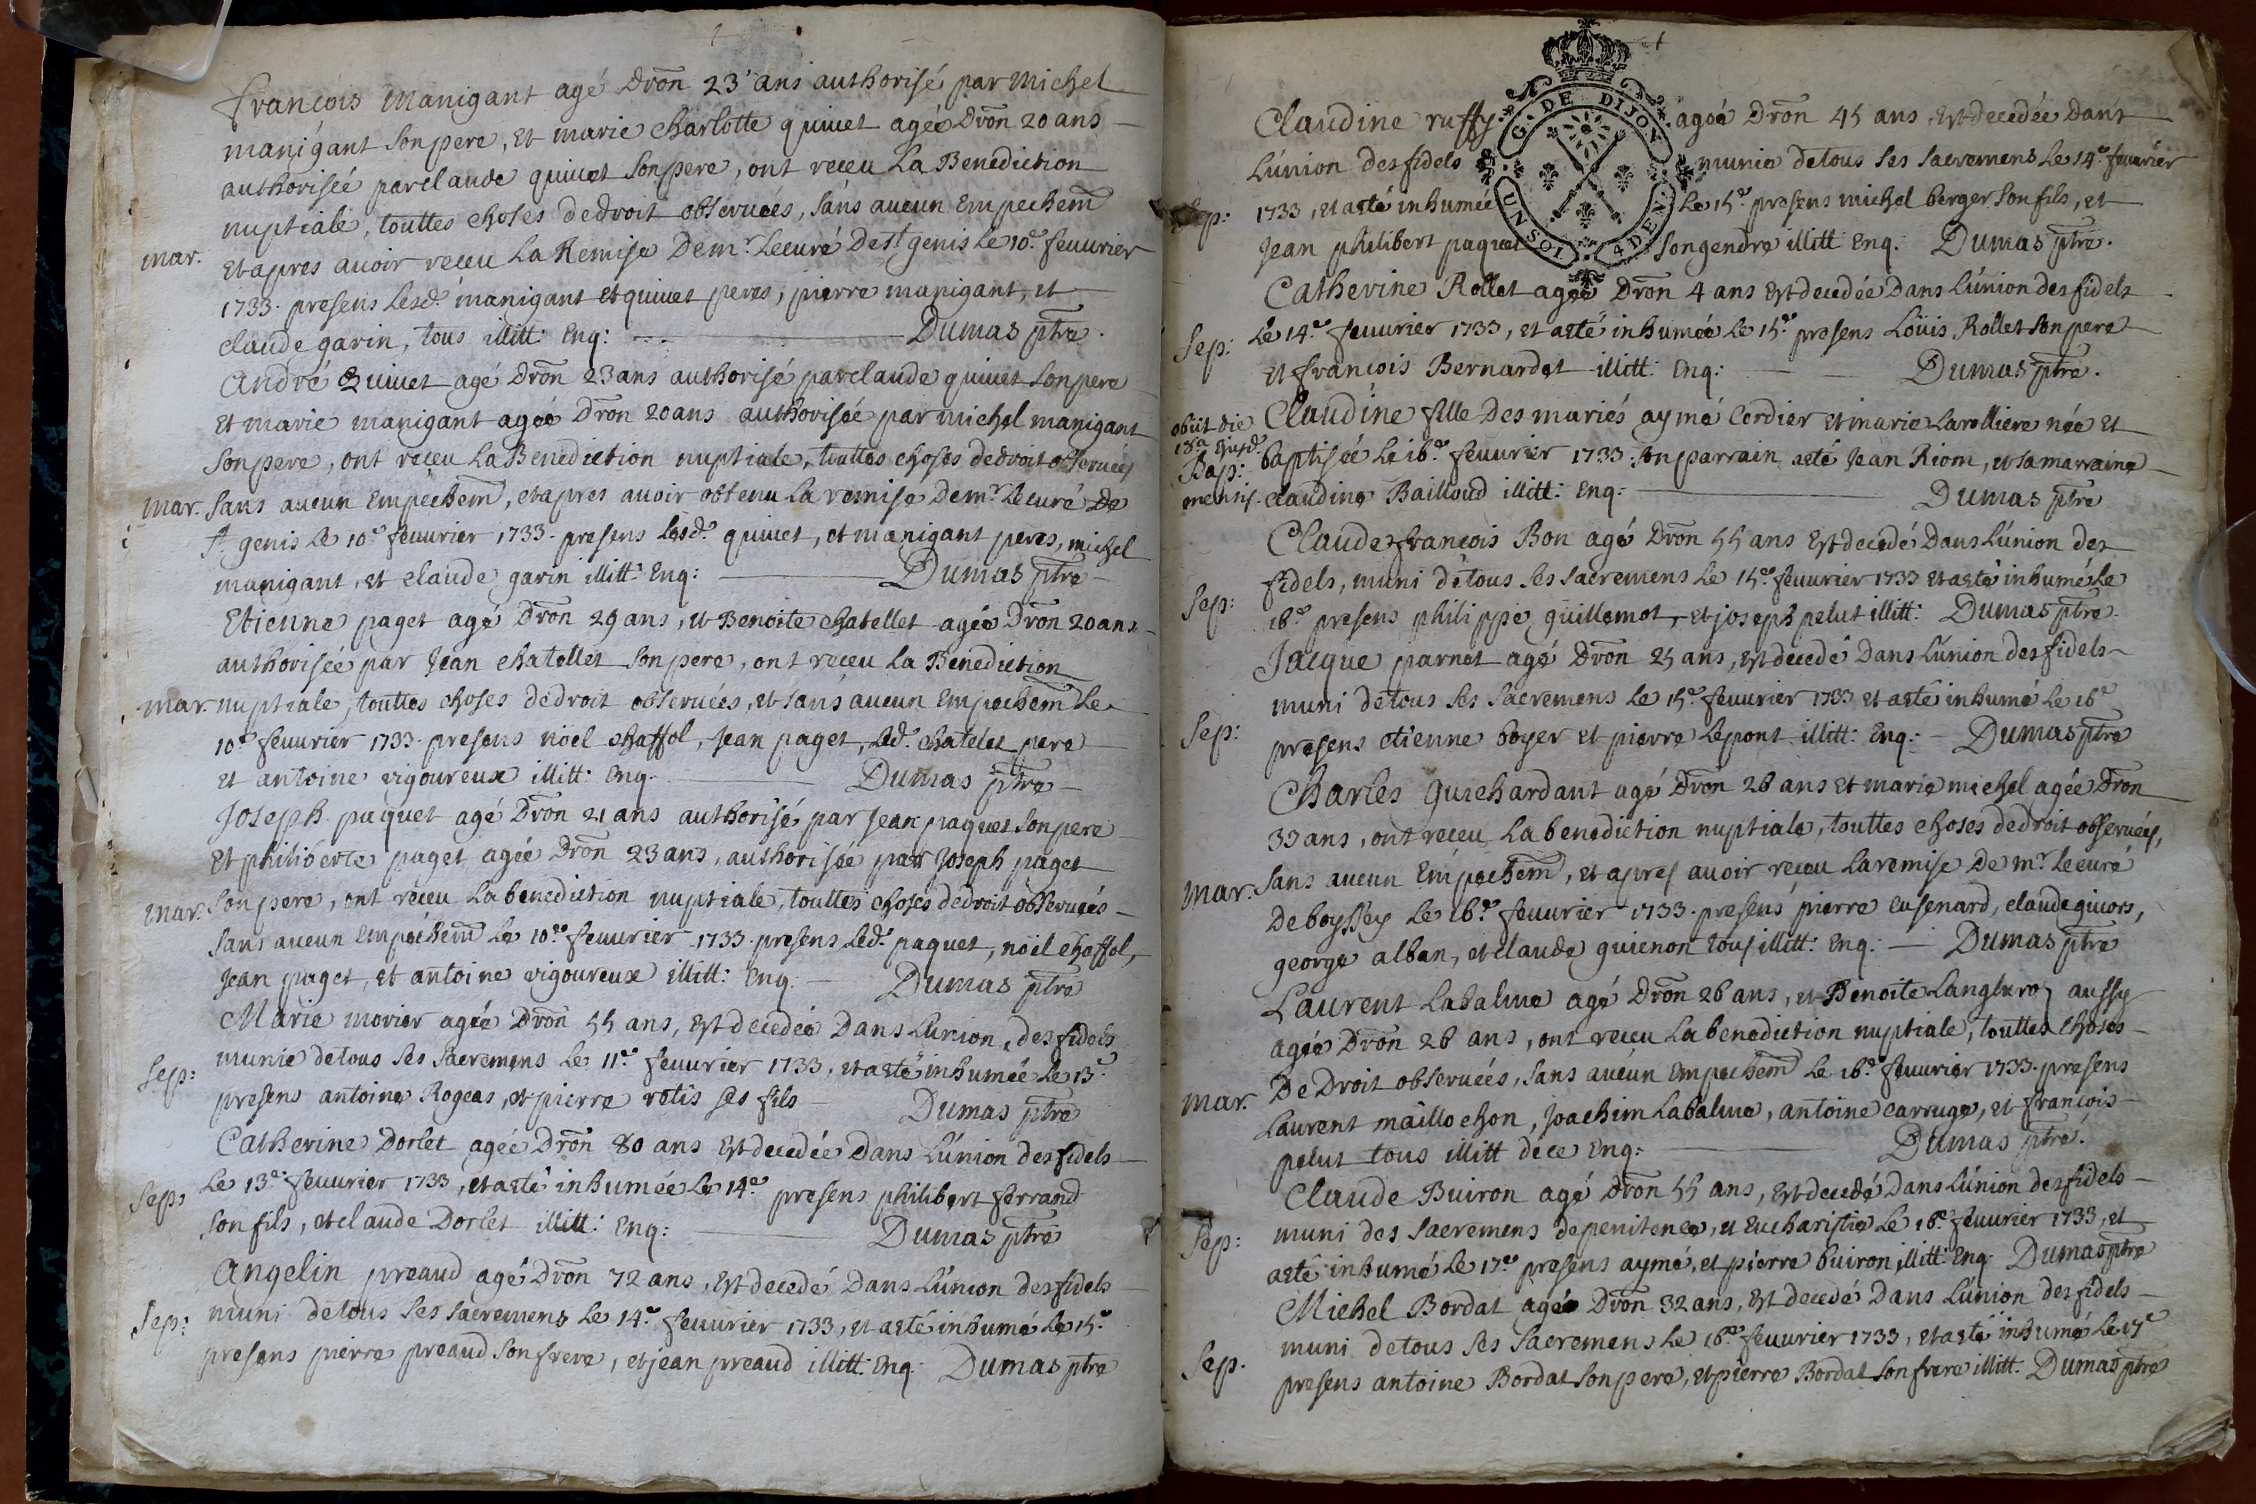 François Manigant agé Dron 23 ans authorisé par michel
manigant son pere, et marie charlotte quivet agée Dron 20 ans
authorisée par claude quivet son pere, ont receu La Benediction
nuptiale, touttes choses de droit observées, sans aucun Empechem
mar. et apres avoir receu La Remise De mr. Le curé De st genis Le 10e. fevurier
1733. presens Lesd. manigant et quivet peres, pierre manigant, et
claude garin, tous illitt: Enq: Dumas ptre.
André Quivet agé Dron 23 ans authorisé par claude quivet son pere
et marie manigant agée Dron 20 ans authorisée par michel manigant
son pere, ont receu La Benediction nuptiale, touttes choses de droit observées
mar. sans aucun Empechem, et apres avoir obtenu La remise De mr. Le curé De
st. genis Le 10e. fevurier 1733. presens Lesd. quivet, et manigant peres, michel
manigant, et claude garin illitt: Enq: Dumas ptre
Etienne paget agé Dron 29 ans, et Benoite chatellet agée Dron 20 ans
authorisée par Jean chatellet son pere, ont receu La Benediction
mar. nuptiale, touttes choses de droit observées, et sans aucun Empechem Le
10e. fevurier 1733. presens noël chaffol, Jean paget, Led. chatelet pere
et antoine vigoureux illitt: Enq. Dumas ptre
Joseph paquet agé Dron 21 ans authorisé par Jean paquet son pere
et philiberte paget agée Dron 23 ans, authorisée par Joseph paget
mar. son pere, ont receu La benediction nuptiale, touttes choses de droit observées
sans aucun Empechem Le 10e. fevurier 1733. presens Led. paquet, noël chaffol,
Jean paget, et antoine vigoureux illitt: Enq. Dumas ptre
Marie morier agée Dron 55 ans, Est decedée Dans L'union, des fidels
Sep: munie de tous ses sacremens Le 11e. fevurier 1733, et a esté inhumée Le 13e.
presens antoine Rogeas, et pierre retis ses fils Dumas ptre
Catherine Dorlet agée Dron 80 ans Est decedée Dans L'union des fidels
Sep: Le 13e. fevurier 1733, et a esté inhumée Le 14e. presens philibert ferrand
son fils, et claude Dorlet illitt: Enq: Dumas ptre
Angelin preaud agé Dron 72 ans, Est decedé Dans L'union des fidels
Sep: muni de tous ses sacremens Le 14e. fevurier 1733, et a esté inhumé Le 15e.
presens pierre preaud son frere, et jean preaud illitt: Enq. Dumas ptre
G. DE DIJON
UN SOL 4 DEN.
Claudine ruffy agée Dron 45 ans, Est decedée Dans
L'union des fidels munie de tous ses sacremens Le 14e. fevurier
Sep: 1733, et a esté inhumée Le 15e. presens michel berger son fils, et
Jean philibert paquet son gendre illitt: Enq: Dumas ptre.
Catherine Rollet agée Dron 4 ans Est decedée Dans L'union des fidels
Sep: Le 14e. fevurier 1733, et a esté inhumée Le 15e. presens Loüis Rollet son pere
et françois Bernardet illitt: Enq: Dumas ptre.
obiit die Claudine fille Des mariés aymé Cordier et marie Larolliere née et
18a Ejusd.
Bap: baptisée Le 16e. fevurier 1733. son parrain a esté Jean Riom, et sa marraine
mensis. claudine Bailloud illitt: Enq: Dumas ptre
Claude françois Bon agé Dron 55 ans Est decedé Dans L'union des
Sep: fidels, muni de tous ses sacremens Le 15e. fevurier 1733 et a esté inhumé Le
16e. presens philippe guillemot, et joseph pelut illitt: Dumas ptre.
Jacque parnet agé Dron 25 ans, Est decedé Dans L'union des fidels
muni de tous ses sacremens Le 15e. fevurier 1733 et a esté inhumé Le 16e
Sep: presens etienne boyer et pierre Lepont illitt: Enq: Dumas ptre
Charles Guichardant agé Dron 26 ans et marie michel agée Dron
33 ans, ont receu La benediction nuptiale, touttes choses de droit observées,
mar. sans aucun Empechem, et apres avoir receu La remise De mr. Le curé
De boyssey Le 16e. fevurier 1733. presens pierre Eusenard, claude givors,
george alban, et claude guienon tous illitt: Enq: Dumas ptre
Laurent Labalme agé Dron 26 ans, et Benoite aussy
agée Dron 26 ans, ont receu La benediction nuptiale, touttes choses
mar. De Droit observées, sans aucun Empechem Le 16e. fevurier 1733. presens
Laurent maillochon, Joachim Labalme, antoine carruge, et françois
pelut tous illitt de ce Enq: Dumas ptre.
Claude Buiron agé Dron 55 ans, Est decedé Dans L'union des fidels
Sep: muni des sacremens de penitence, et Eucharistie Le 16e. fevurier 1733, et
a esté inhumé Le 17e. presens aymé, et pierre buiron illitt: Enq. Dumas ptre
Michel Bordat agé Dron 32 ans, Est decedé Dans L'union des fidels
muni de tous ses sacremens Le 16e. fevurier 1733, et a esté inhumé Le 17e
Sep. presens antoine Bordat son pere, et pierre Bordat son frere illitt: Dumas ptre